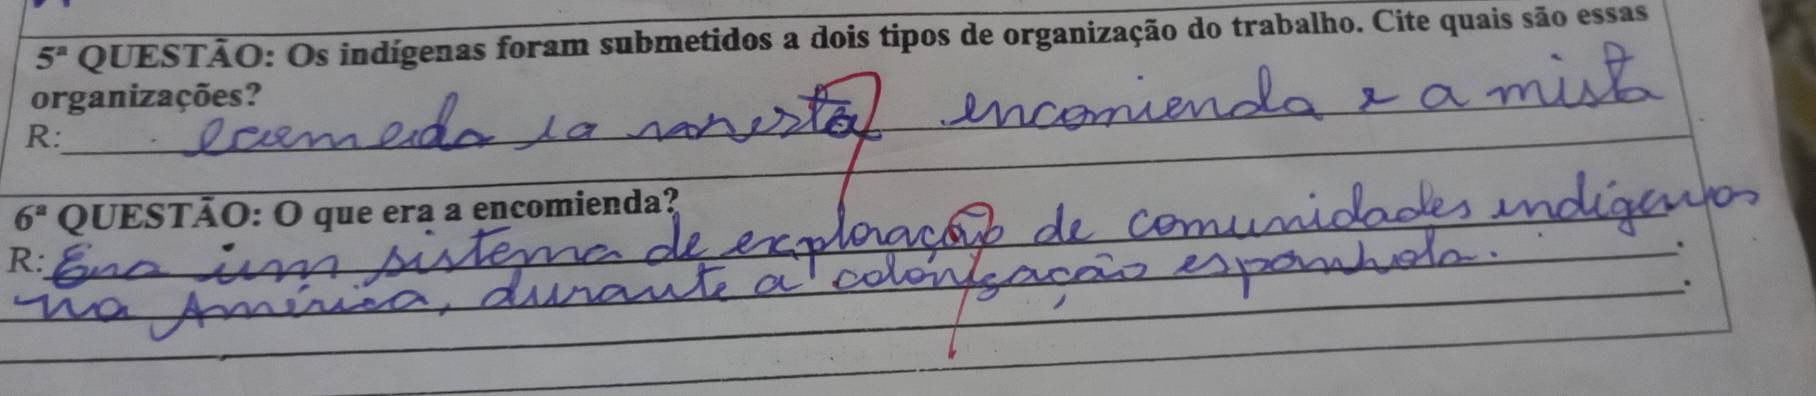 5ª QUESTÃO: Os indígenas foram submetidos a dois tipos de organização do trabalho. Cite quais são essas
organizações?
R: encomienda e a mista
6ª QUESTÃO: O que era a encomienda?
R: Era um sistema de exploração de comunidades indígenas
na América, durante a colonização espanhola.